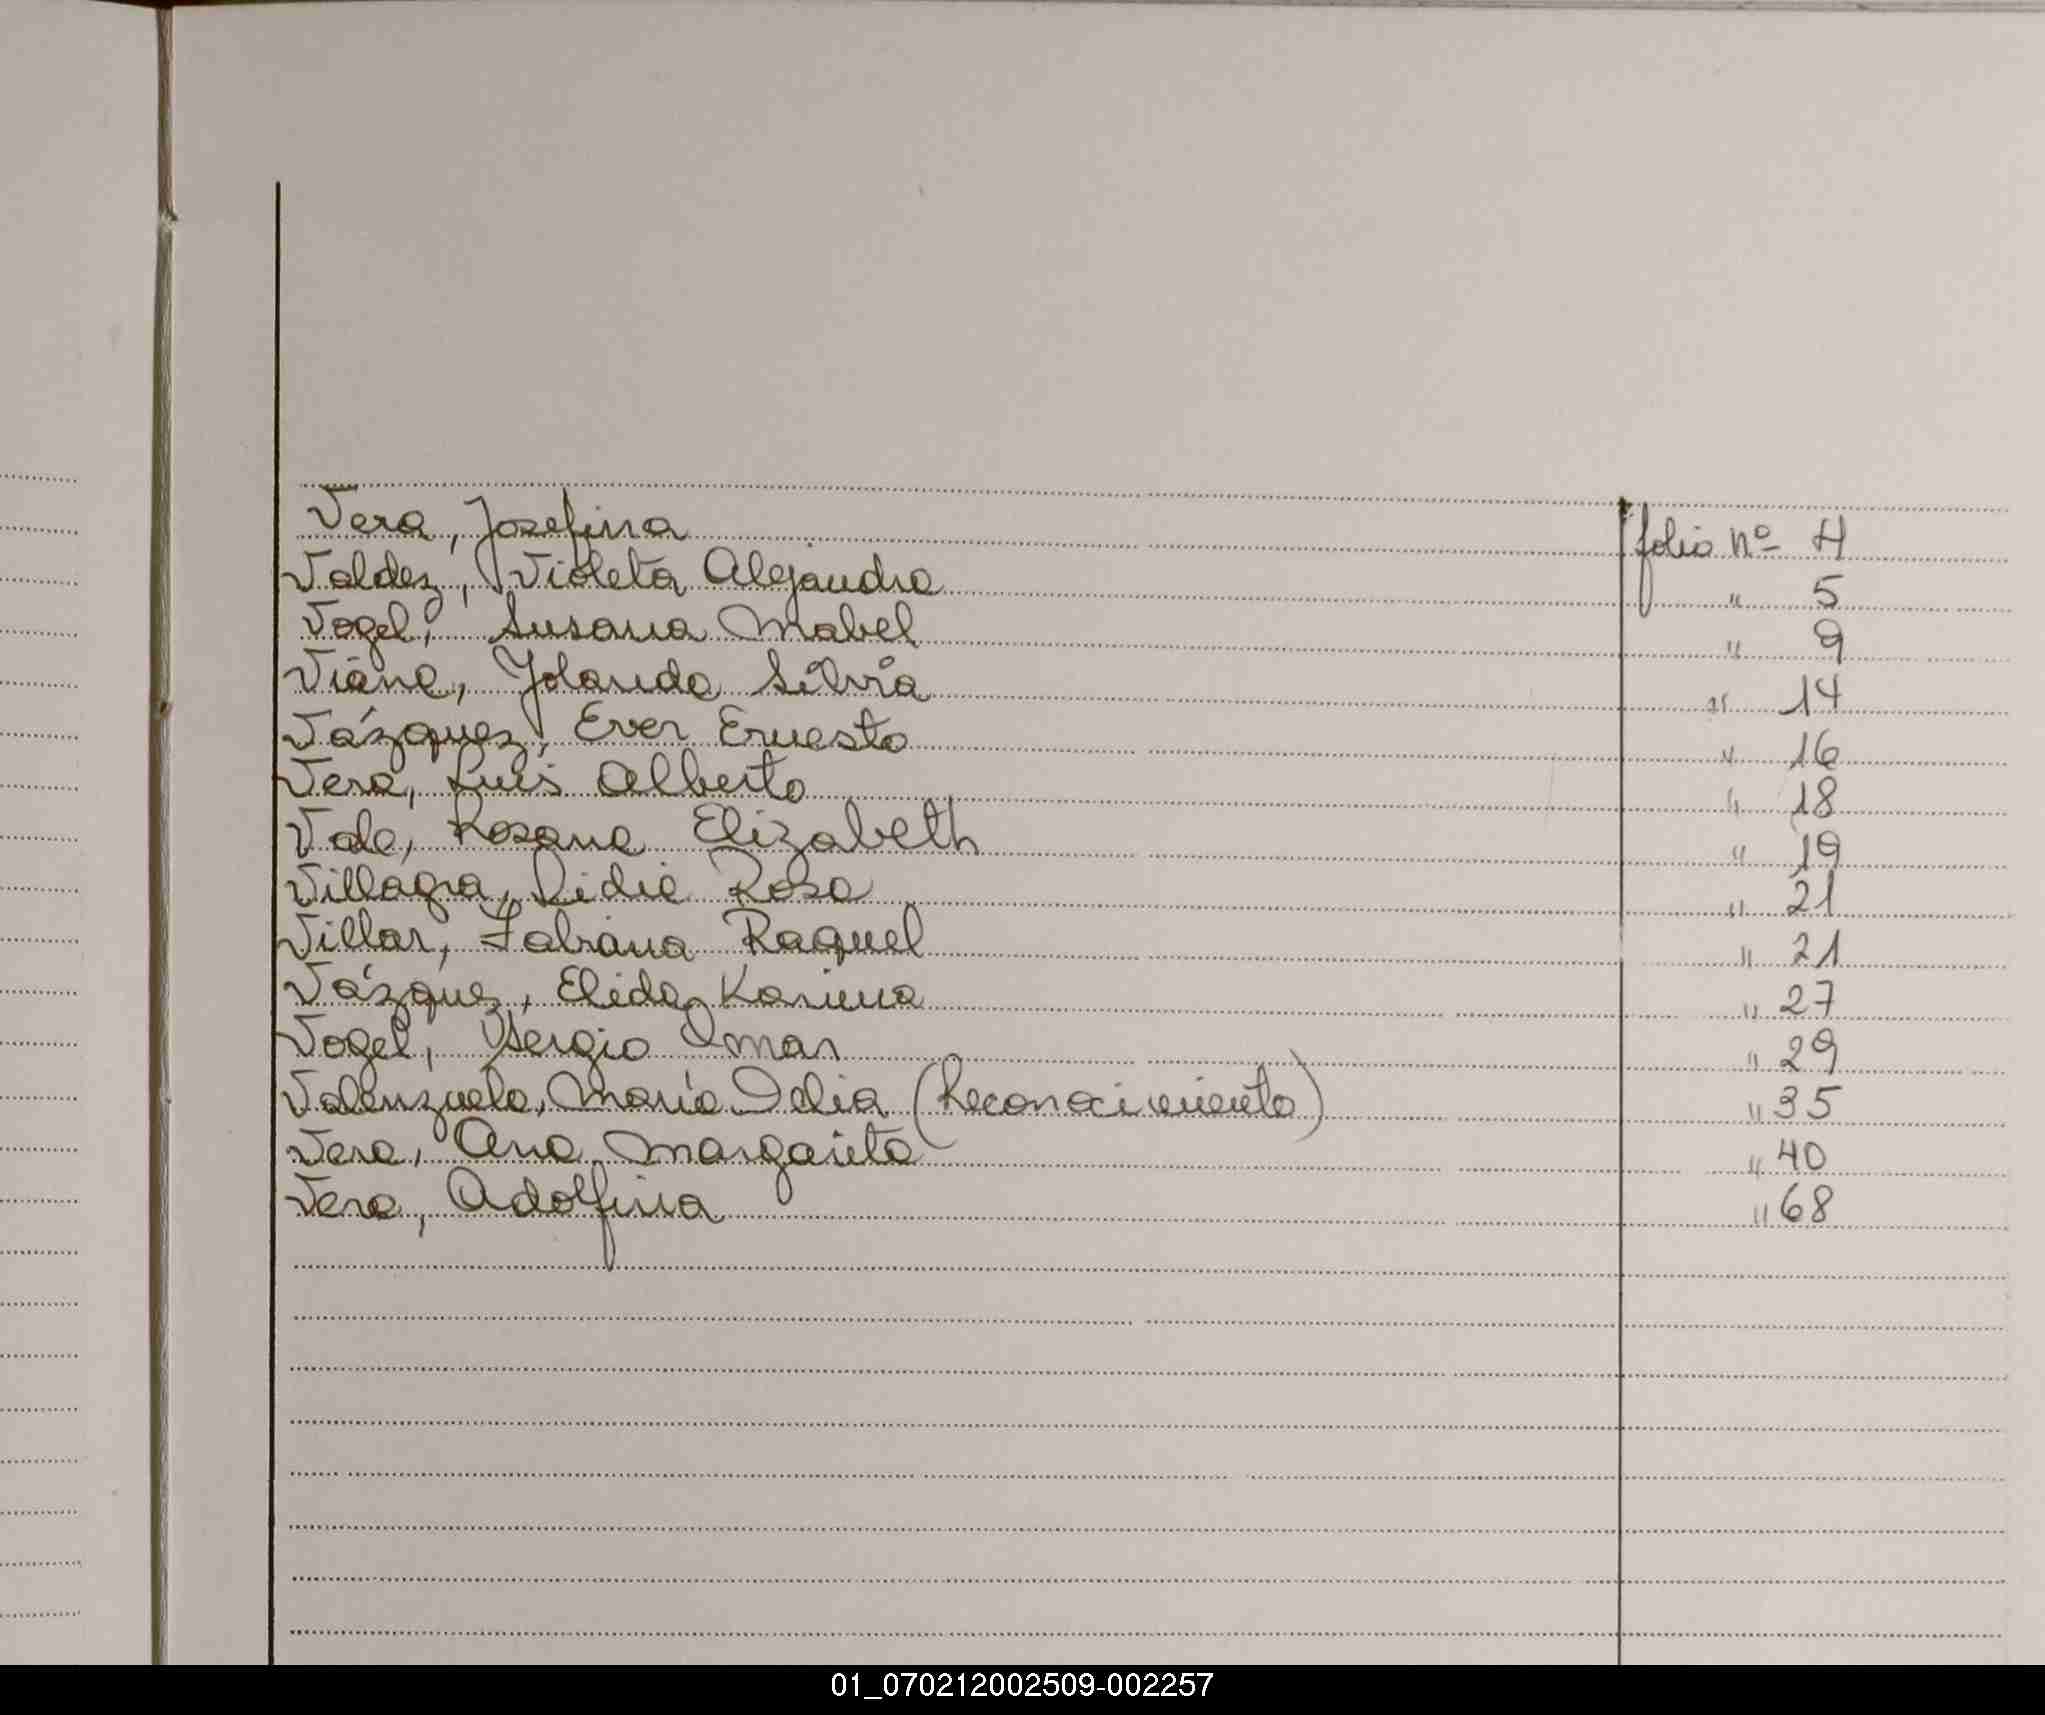 Vera, Josefina folio nº 4
Valdez, Violeta Alejandra " 5
Vogel, Susana Mabel " 9
Viana, Yolanda Silvia " 14
Vázquez, Ever Ernesto " 16
Vera, Luis Alberto " 18
Vale, Rosana Elizabeth " 19
Villagra, Lidia Rosa " 21
Villar, Fabiana Raquel " 21
Vázquez, Elida Karina " 27
Vogel, Sergio Omar " 29
Valenzuela, María Delia (Reconocimiento) " 35
Vera, Ana Margarita " 40
Vera, Adolfina " 68
01_070212002509-002257